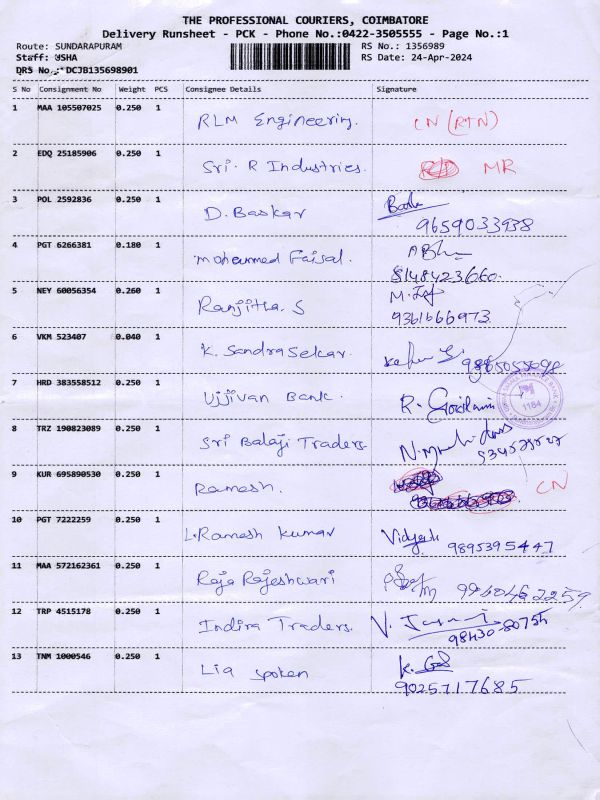 THE PROFESSIONAL COURIERS, COIMBATORE
Delivery Runsheet - PCK - Phone No.:0422-3505555 - Page No.:1
Route: SUNDARAPURAM RS No.: 1356989
Staff: USHA RS Date: 24-Apr-2024
DRS No.: DCJB135698901
S No Consignment No Weight PCS Consignee Details Signature
1 MAA 105507025 0.250 1 RLM Engineering. CN (RTN)
2 EDQ 25185906 0.250 1 Sri. R Industries. MR
3 POL 2592836 0.250 1 D. Baskar
9659033938
4 PGT 6266381 0.180 1 Mohammed Faisal.
8148423660.
5 NEY 60056354 0.260 1 Ranjitha. S
9361666973.
6 VKM 523407 0.040 1 K. Sandra Sekar. 9865055698
7 HRD 383558512 0.250 1 Ujjivan Bank.
1154
8 TRZ 190823089 0.250 1 Sri Balaji Traders
9 KUR 695890530 0.250 1 Ramesh. CN
10 PGT 7222259 0.250 1 L. Ramesh Kumar
9895395447
11 MAA 572162361 0.250 1 Raja Rajeshwari
12 TRP 4515178 0.250 1 Indira Traders.
98430-80754
13 TNM 1000546 0.250 1 Lia Spoken
9025717685